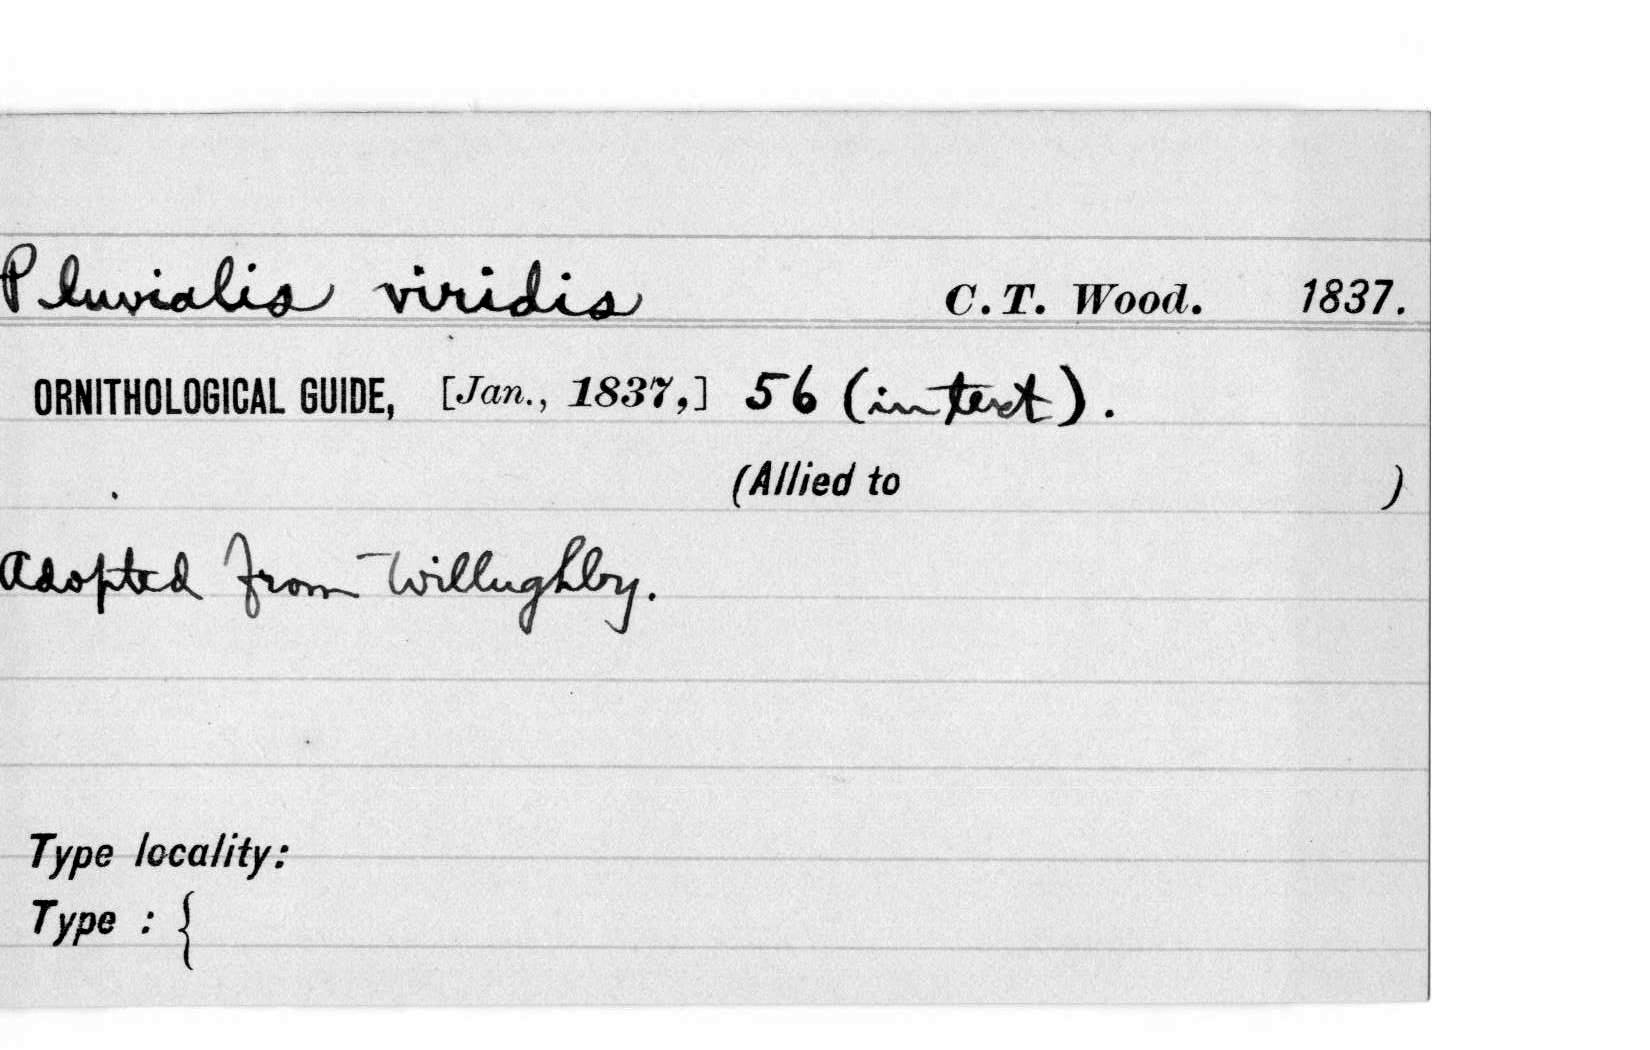 Pluvialis viridis C.T. Wood. 1837.
ORNITHOLOGICAL GUIDE, [Jan., 1837,] 56 (in text).
(Allied to )
Adopted from Willughby.
Type locality:
Type : {